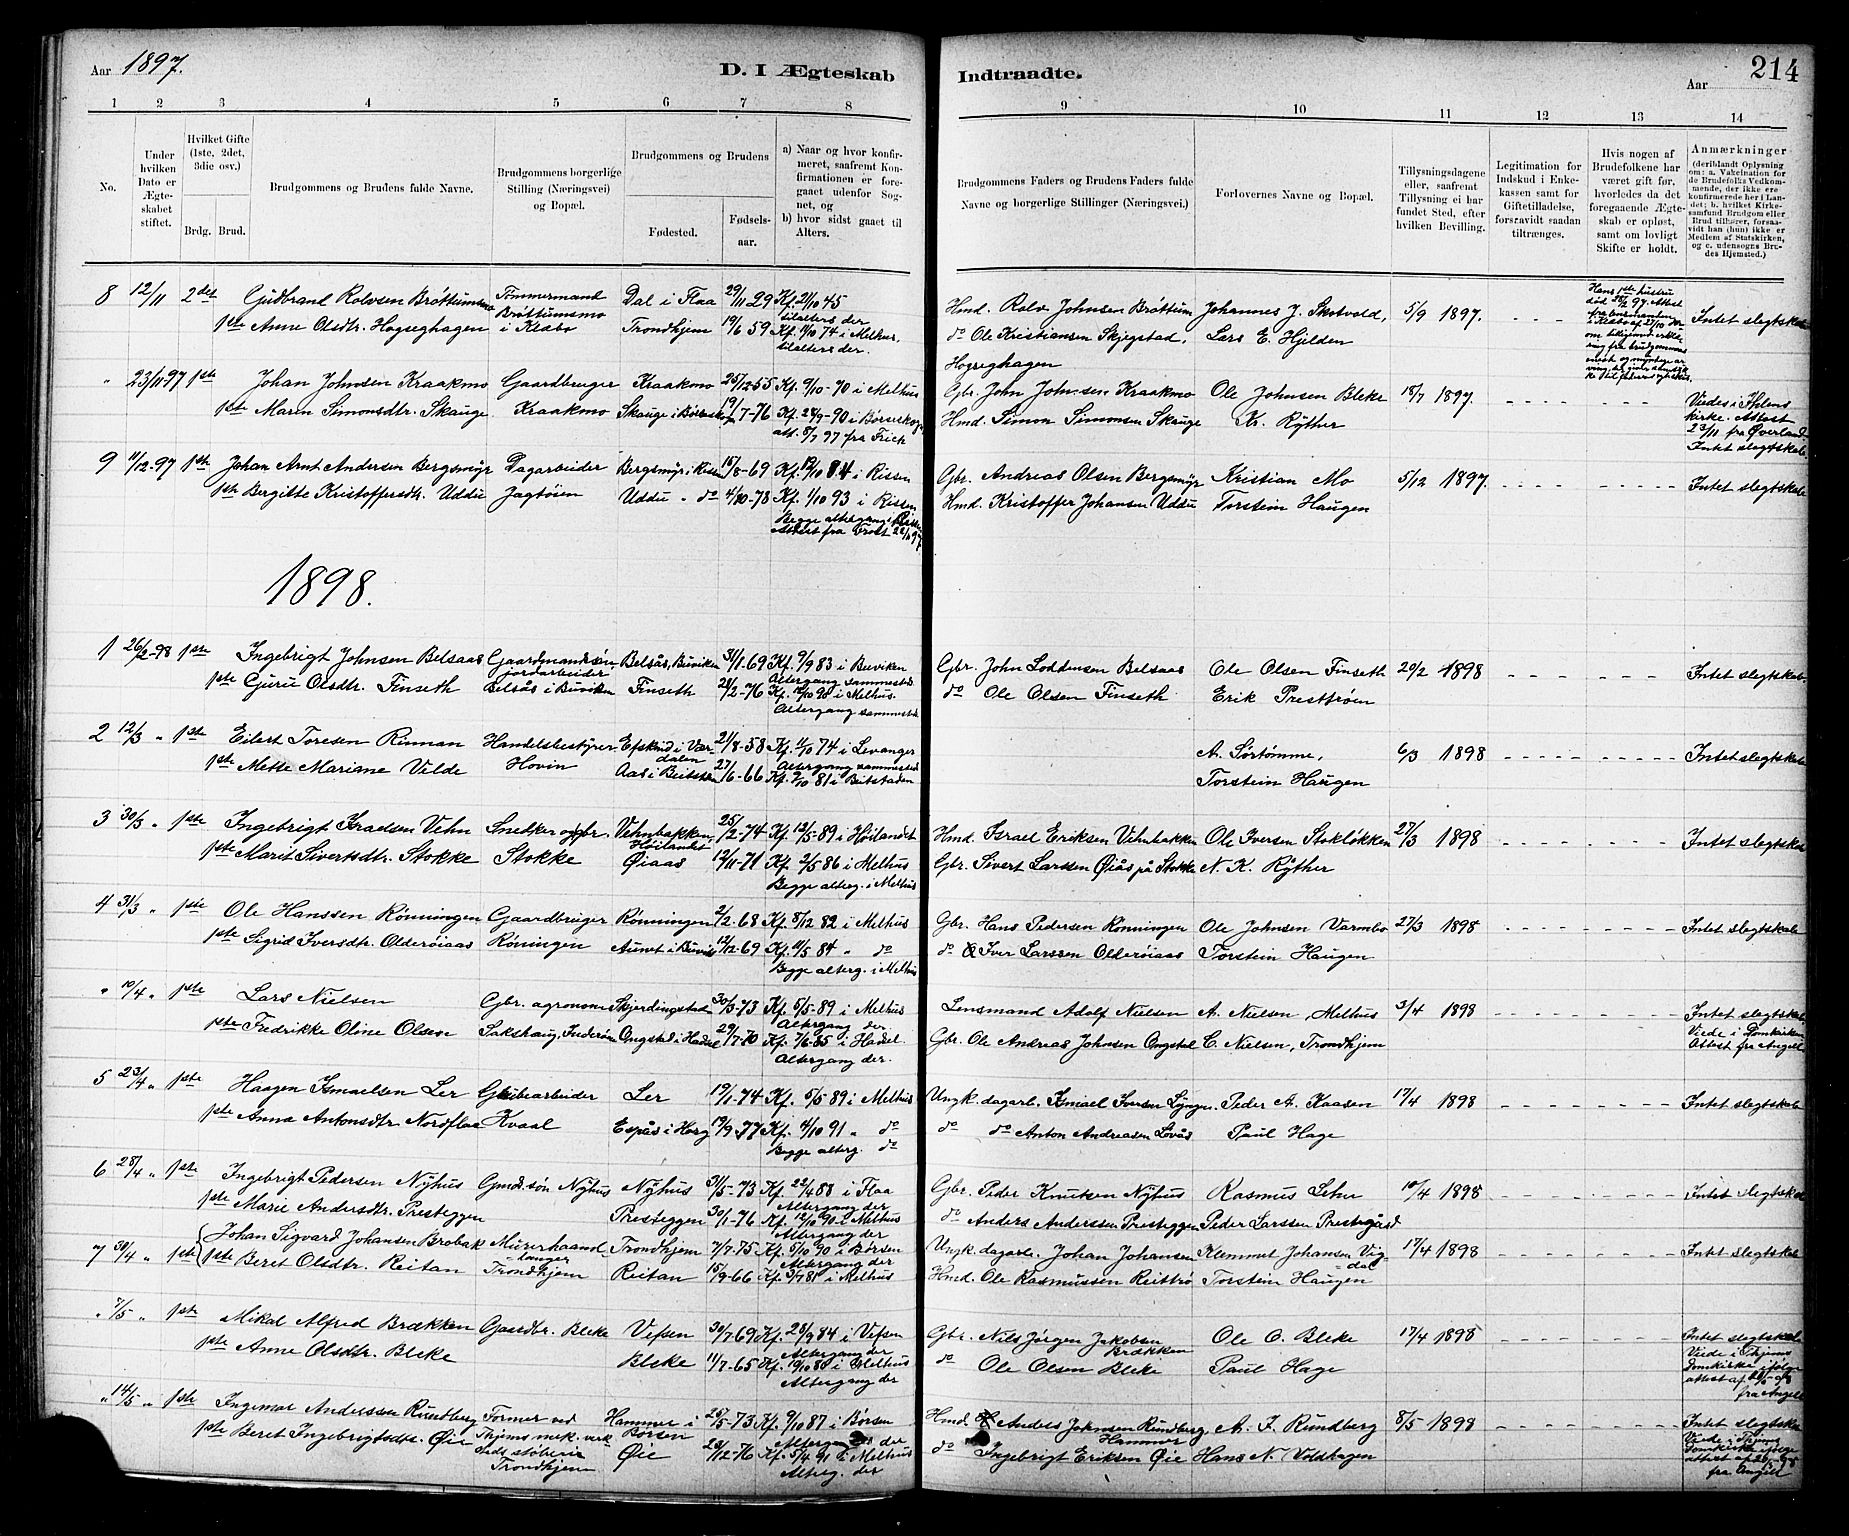 Aar 1897.
D. I Ægteskab
Indtraadte.
Aar
214
1 2 3 4 5 6 7 8 9 10 11 12 13 14
No.
Under hvilken Dato er Ægteskabet stiftet.
Hvilket Gifte (1ste, 2det, 3die osv.)
Brdg. Brud.
Brudgommens og Brudens fulde Navne.
Brudgommens borgerlige Stilling (Næringsvei) og Bopæl.
Brudgommens og Brudens
Fødested.
Fødselsaar.
a) Naar og hvor konfirmeret, saafremt Konfirmationen er foregaaet udenfor Sognet, og
b) hvor sidst gaaet til Alters.
Brudgommens Faders og Brudens Faders fulde Navne og borgerlige Stillinger (Næringsvei.)
Forlovernes Navne og Bopæl.
Tillysningsdagene eller, saafremt Tillysning ei har fundet Sted, efter hvilken Bevilling.
Legitimation for Indskud i Enkekassen samt for Giftetilladelse, forsavidt saadan tiltrænges.
Hvis nogen af Brudefolkene har været gift før, hvorledes da det foregaaende Ægteskab er opløst, samt om lovligt Skifte er holdt.
Anmærkninger (deriblandt Oplysning om: a. Vakcination for de Brudefolks Vedkommende, der ikke ere konfirmerede her i Landet; b. hvilket Kirkesamfund Brudgom eller Brud tilhører, forsaavidt han (hun) ikke er Medlem af Statskirken, og c. udensogns Brudes Hjemsted.)
8 12/11 2det Gudbrand Rolvsen Brøttumsmo Tømmermand Dal i Flaa 29/11 29 Kf. 21/10 45 Hmd. Rolv Johnsen Brøttum Johannes J. Skotvold, 5/9 1897. Intet slegtskab
Brøttumsmo tilalters der
1ste Anne Olsdtr. Hogseghagen i Klæbo Trondhjem 19/6 59 Kf. 4/10 74 i Melhus, tilalters der. do Ole Kristiansen Skjegstad, Lars E. Hjelden
Hogseghagen
Hans 1ste hustru død 28/2 97. Attest fra lensmanden i Klæbo af 27/10
" 23/11-97 1ste Johan Johnsen Kraakmo Gaardbruger Kraakmo 26/12-55 Kf. 9/10-70 i Melhus Gbr. John Johnsen Kraakmo Ole Johnsen Bleke 18/7 1897. Viedes i Ihlens kirke. Attest 23/11 fra Øverland. Intet slegtskab.
1ste Maren Simonsdtr. Skauge Kraakmo Skauge i Børseskogn 19/7-76 Kf. 28/9-90 i Børseskogn att. 8/7 97 fra Frich Hmd. Simon Simonsen Skauge Kr. Rÿther
9 11/12-97 1ste Johan Arnt Andersen Bergsmÿr Dagarbeider Bergsmÿr i Rissen 15/8-69 Kf. 12/10 84 i Rissen Gbr. Andreas Olsen Bergsmÿr Kristian Mo 5/12 1897 Intet slegtskab
1ste Bergitte Kristoffersdtr. Uddu Jagtøien Uddu - do 4/10-73 Kf. 1/10 93 i Rissen Hmd. Kristoffer Johansen Uddu Torstein Haugen
Begge altergang i Rissen
Attest fra Frost 22/11 97.
1898.
1 26/2-98 1ste Ingebrigt Johnsen Belsaas Gaardmandssøn, jordarbeider Belsås, Buviken 31/1-69 Kf. 9/9 83 i Buviken Gbr. John Loddensen Belsaas Ole Olsen Finseth 20/2 1898 Intet slegtskab.
Altergang sammesteds
1ste Guru Olsdtr. Finseth Belsås i Buviken Finseth 21/2-76 Kf. 12/10 90 i Melhus. do Ole Olsen Finseth Erik Prestføien
Altergang sammesteds
2 12/3 " 1ste Eilert Toresen Rinnan Handelsbestÿrer Efskind i Værdalen 21/8-58 Kf. 11/10 74 i Levanger A. Sørtømme, 6/3 1898 Intet slegtskab
Altergang sammesteds
1ste Mette Mariane Velde Hovin Aas i Beitstaden 27/6-66 Kf. 9/10 81 i Beitstaden Torstein Haugen
3 30/3 " 1ste Ingebrigt Israelsen Vehn Snedker og gbr. Vehnbakken, Høilandet 25/2-74 Kf. 12/5-89 i Høilandet Hmd. Israel Eriksen Vehnbakken Ole Iversen Stokløkken 27/3 1898 Intet slegtskab
1ste Marit Sivertsdtr. Stokke Stokke Øiaas 12/11-71 Kf. 2/5 86 i Melhus Gbr. Sivert Larssen Øiås på Stokke N. K. Rÿther
Begge alterg. i Melhus
4 31/3 " 1ste Ole Hanssen Rønningen Gaardbruger Rønningen 2/2-68 Kf. 8/12 82 i Melhus Gbr. Hans Pedersen Rønningen Ole Johnsen Varmbo 27/3 1898 Intet slegtskab
1ste Sigrid Iversdtr. Olderøiaas Røningen Aunet i Buviken 12/12-69 Kf. 11/5 84 " do do Iver Larssen Olderøiaas Torstein Haugen
Begge alterg. i Melhus
" 10/4 " 1ste Lars Nielsen Gbr. agronom Skjerdingstad 30/3-73 Kf. 5/5-89 i Melhus Lensmand Adolf Nielsen A. Nielsen, Melhus 3/4 1898 Intet slegtskab
Altergang der
1ste Fredrikke Oline Olsen Sakshaug, Inderøen Ongstad i Hadsel 29/7-70 Kf. 7/6-85 i Hadsel Gbr. Ole Andreas Johnsen Ongstad C. Nielsen, Trondhjem Viede i Domkirken Attest fra Angell
Altergang der.
5 23/4 " 1ste Haagen Ismaelsen Ler Grubearbeider Ler 19/1-74 Kf. 5/5 89 i Melhus Ungk. dagarb. Ismael Iversen Lÿngen Peder A. Kaasen 17/4 1898 Intet slegtskab
1ste Anna Antonsdtr Nordflaa Kvaal Espås i Horg 19/9-77 Kf. 4/10 91 " do do do Anton Andreasen Lovås Paul Hage
Begge alterg. do
6 28/4 " 1ste Ingebrigt Pedersen Nÿhus Gmds.søn Nÿhus Nÿhus 31/5-73 Kf. 22/4 88 i Flaa Gbr. Peder Knutsen Nÿhus Rasmus Lehn 10/4 1898 Intet slegtskab
Altergang der
1ste Marie Andersdtr. Presteggen Presteggen 30/1-76 Kf. 12/10 90 i Melhus do Anders Anderssen Presteggen Peder Larssen Prestegård
Altergang der
7 30/4 " 1ste Johan Sigvard Johansen Brobak Murerhaandlanger Trondhjem 7/7-75 Kf. 5/10 90 i Børsen Ungk. dagarb. Johan Johansen Klemmet Johansen Vigdal 17/4 1898 Intet slegtskab
Altergang der
1ste Beret Olsdtr. Reitan Trondhjem Reitan 15/9-66 Kf. 3/7 81 i Melhus Hmd. Ole Rasmussen Reittrø Torstein Haugen
" 7/5 " 1ste Mikal Alfred Brækken Gaardbr. Bleke Vefsen 30/7 69 Kf. 28/9 84 i Vefsen Gbr. Nils Jørgen Jakobsen Brækken Ole O. Bleke 17/4 1898 Intet slegtskab
Altergang der
1ste Anne Olsdtr. Bleke Bleke 11/7-65 Kf. 19/10 80 i Melhus do Ole Olsen Bleke Paul Hage Viede i Thjems Domkirke ifølge attest af fra Angell
Altergang der
" 14/5 " 1ste Ingemar Anderssen Rundberg Former ved Hammer i Børsen 25/5-73 Kf. 9/10 87 i Børsen Hmd. Anders Johnsen Rundberg, Hammer A. F. Rundberg 8/5 1898 Intet slegtskab
Altergang der
1ste Beret Ingebrigtsdtr. Øie Thjems mek. verksted støberi Trondhjem Øie 20/12-76 Kf. 5/4 91 i Melhus do Ingebrigt Eriksen Øie Hans N. Voldhagen Viede i Thjems Domkirke ifølge attest af fra Angell
Alterg. der